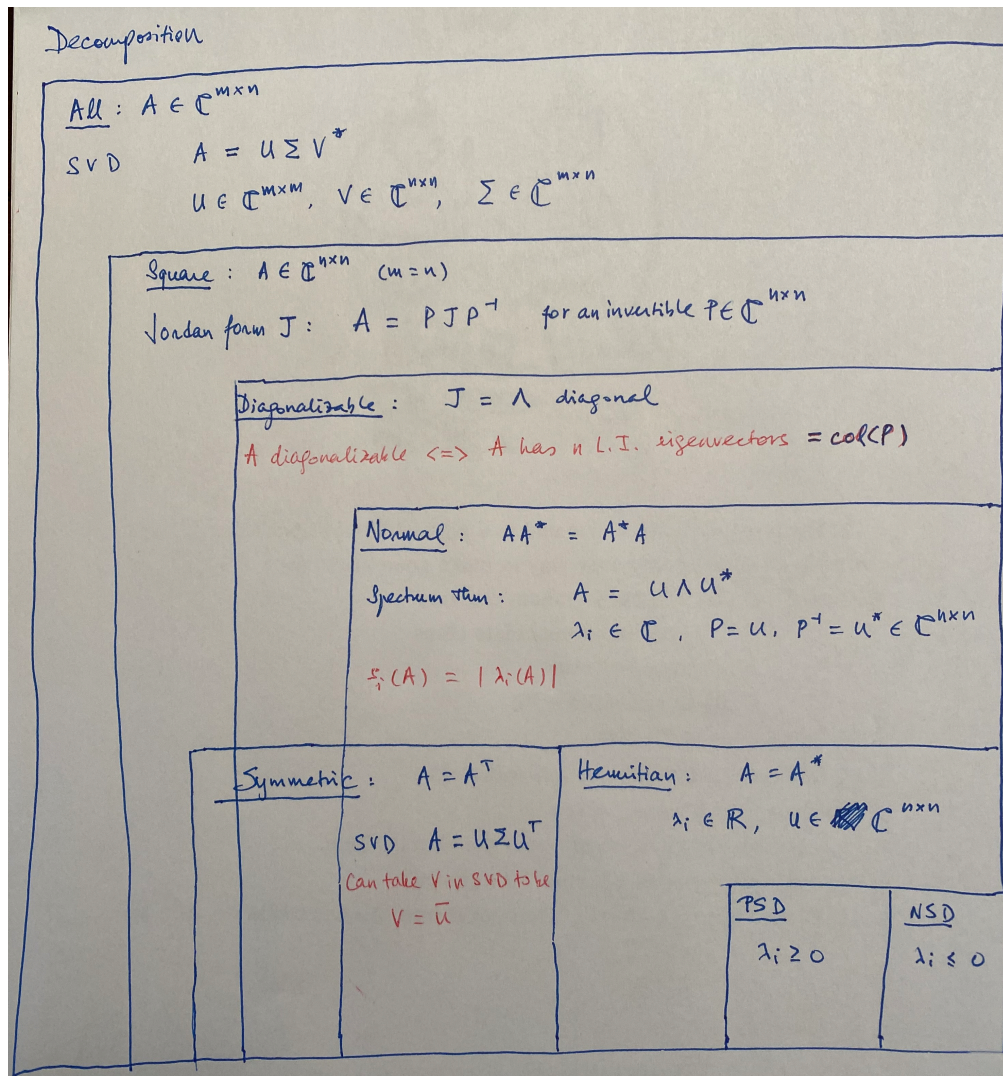 Decomposition
All : A ∈ ℂ^{m×n}
SVD A = U Σ V^*
U ∈ ℂ^{m×m}, V ∈ ℂ^{n×n}, Σ ∈ ℂ^{m×n}
Square : A ∈ ℂ^{n×n} (m = n)
Jordan form J : A = P J P^{-1} for an invertible P ∈ ℂ^{n×n}
Diagonalizable : J = Λ diagonal
A diagonalizable <=> A has n L.I. eigenvectors = col(P)
Normal : AA^* = A^*A
Spectrum thm : A = U Λ U^*
λ_i ∈ ℂ, P = U, P^{-1} = U^* ∈ ℂ^{n×n}
σ_i(A) = |λ_i(A)|
Symmetric : A = A^T
SVD A = U Σ U^T
Can take V in SVD to be
V = ū
Hermitian : A = A^*
λ_i ∈ ℝ, U ∈ ℂ^{n×n}
PSD
λ_i ≥ 0
NSD
λ_i ≤ 0